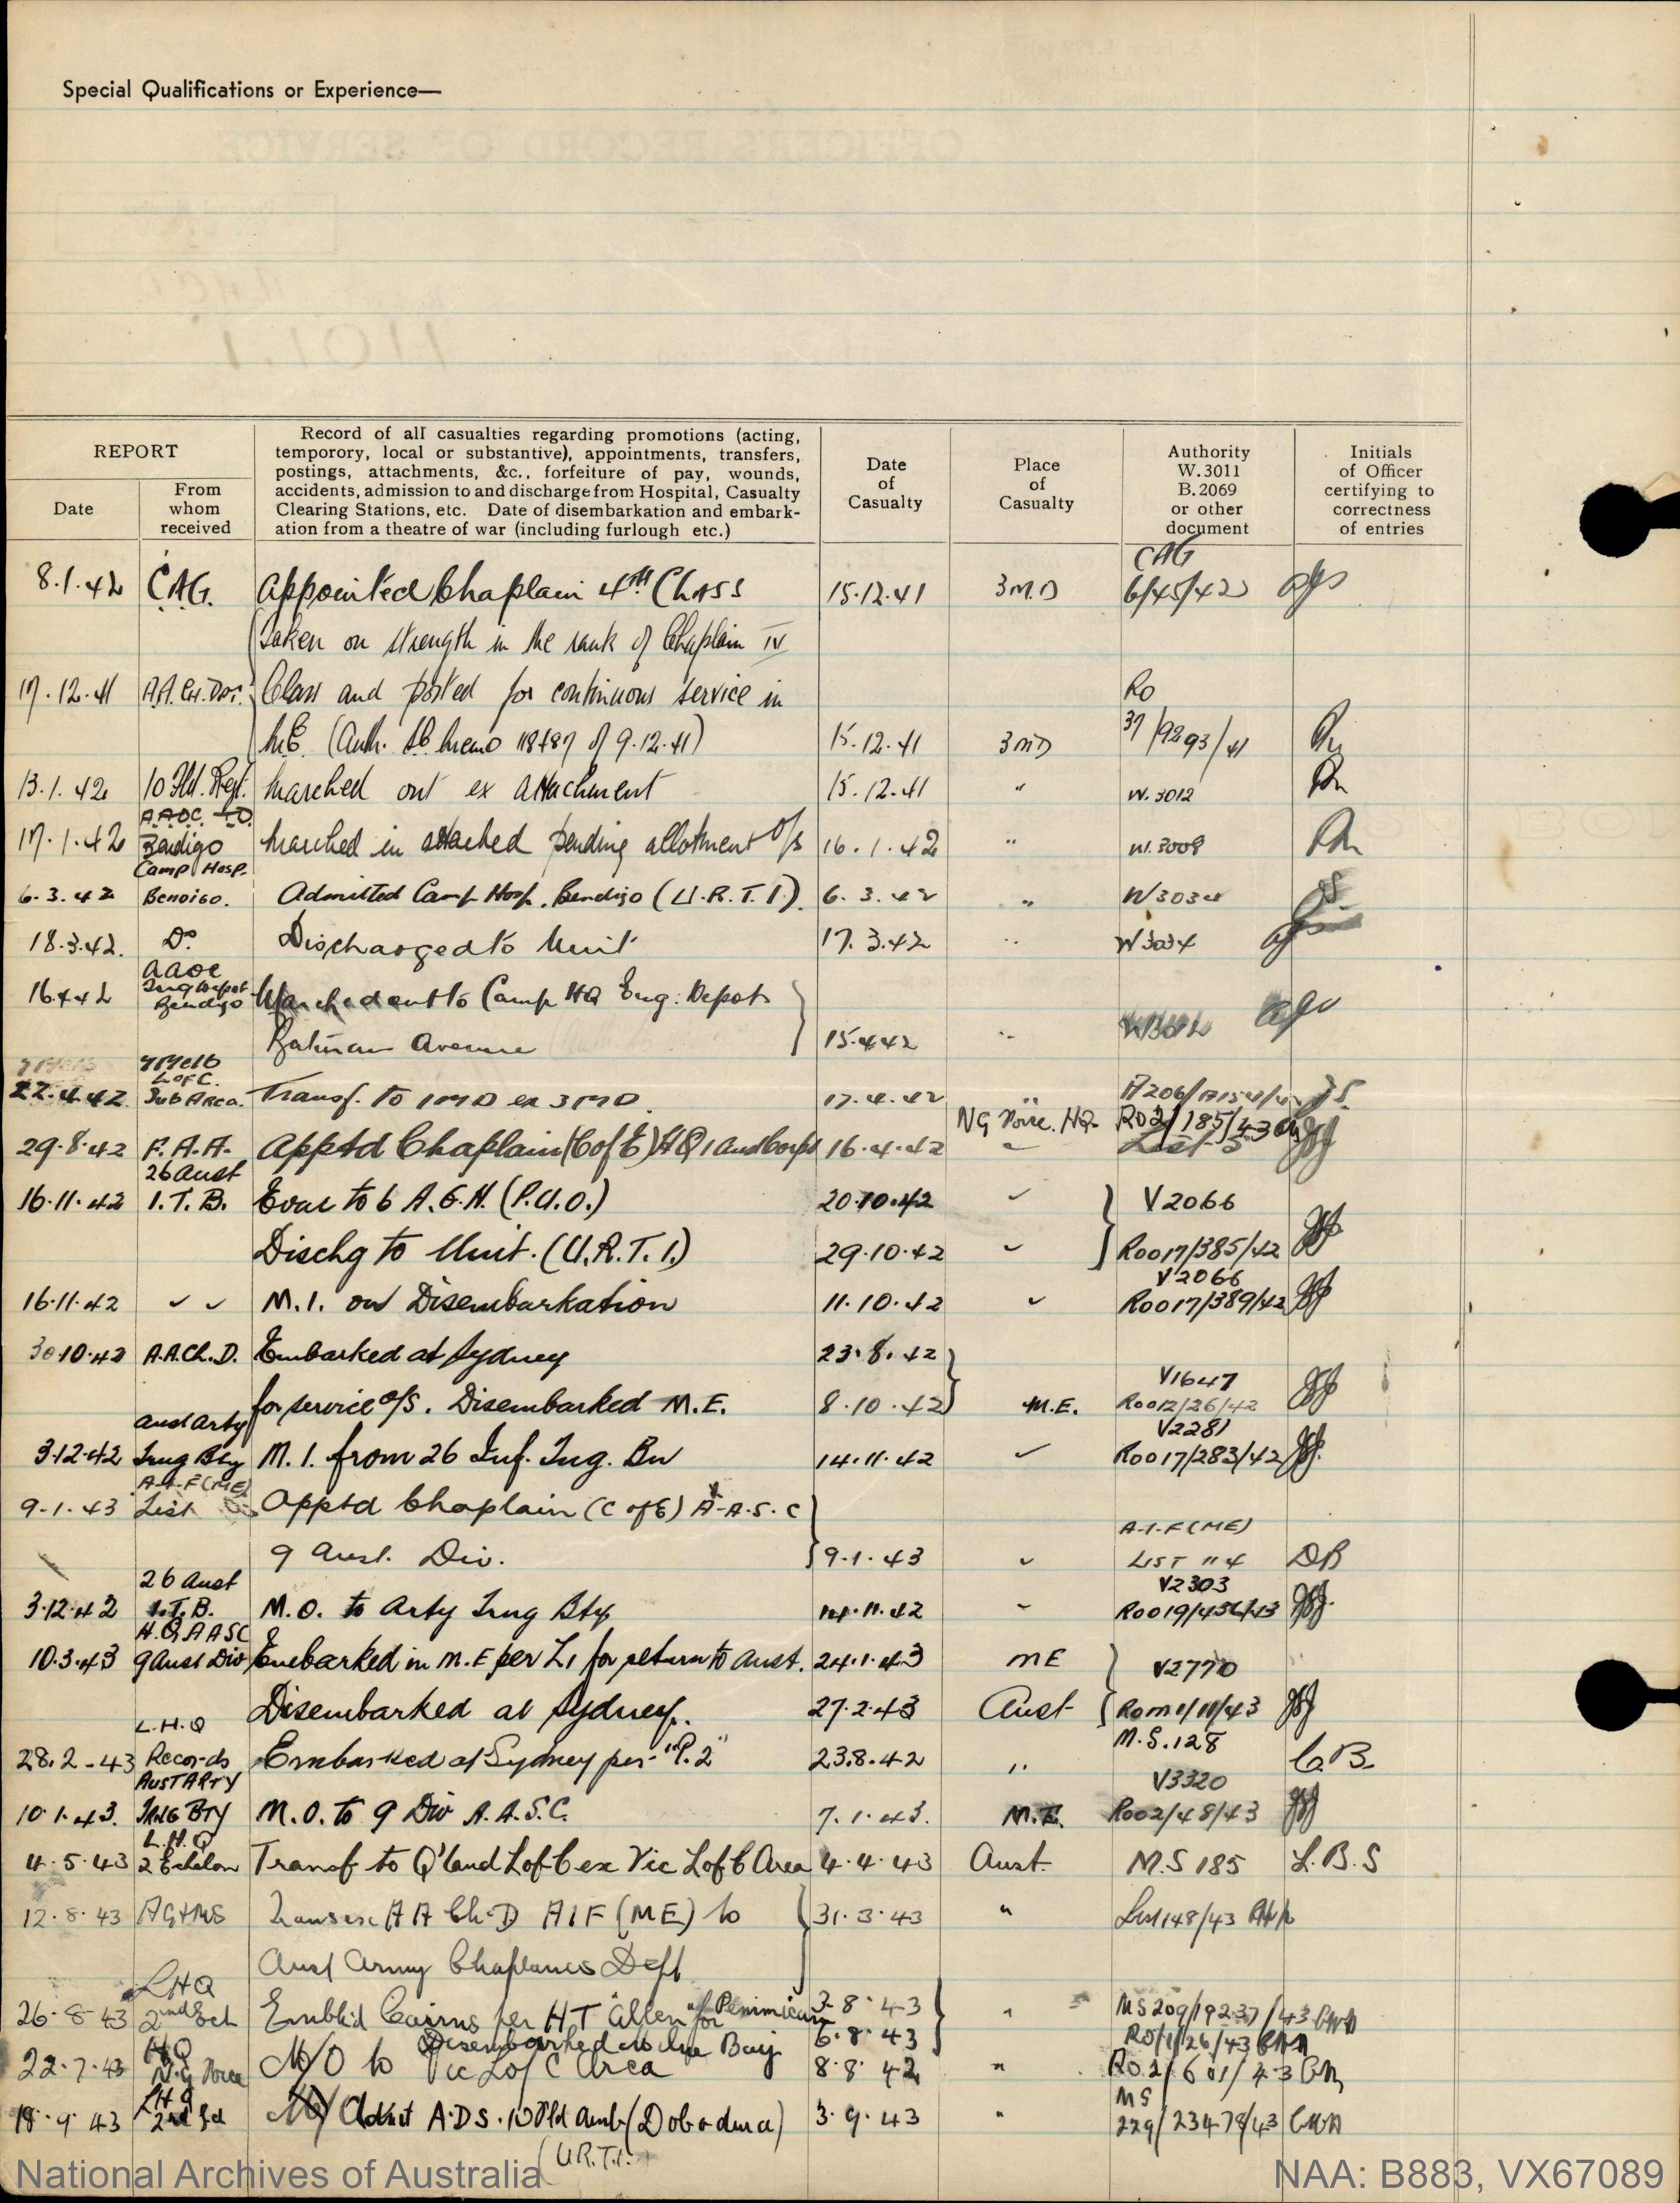 Special Qualifications or Experience—
REPORT
Date
From whom received
Record of all casualties regarding promotions (acting,
temporory, local or substantive), appointments, transfers,
postings, attachments, &c., forfeiture of pay, wounds,
accidents, admission to and discharge from Hospital, Casualty
Clearing Stations, etc. Date of disembarkation and embark-
ation from a theatre of war (including furlough etc.)
Date of Casualty
Place of Casualty
Authority W.3011 B.2069 or other document
Initials of Officer certifying to correctness of entries
CAG
8.1.42 C.A.G. Appointed Chaplain 4th Class 15.12.41 3 M.D 6/45/42
Taken on strength in the rank of Chaplain IV
17.12.41 Class and posted for continuous service in RO
M.E. (Auth. memo of 9.12.41) 15.12.41 3 MD 37/9293/41
13.1.42 10 Regt. Marched out ex attachment 15.12.41 " W.3012
A.A.O.C. T.D.
17.1.42 Bendigo Marched in attached pending allotment o/s 16.1.42 " W.3008
Camp Hosp.
6.3.42 Bendigo. Admitted Camp Hosp. Bendigo (U.R.T.I.) 6.3.42 " W3034
18.3.42. Do Discharged to Unit 17.3.42 " W3034
AAOC
Trng Depot
16.4.42 Bendigo Marched out to Camp HQ Eng: Depot
Batman Avenue 15.4.42 "
L of C.
22.4.42 Sub Area. Transf. to 1 MD ex 3 MD. 17.4.42
NG Force. HQ. RO2/185/43
29.8.42 F.A.A. Apptd Chaplain (C of E) HQ 1 Aust Corps 16.4.42
26 Aust
16.11.42 I.T.B. Evac to 6 A.G.H. (P.U.O.) 20.10.42 V2066
Dischg to Unit. (U.R.T.I.) 29.10.42 Roo17/385/42
V2066
16.11.42 M.I. on Disembarkation 11.10.42 Roo17/389/42
30.10.42 A.A.Ch.D. Embarked at Sydney 23.8.42
V1647
for service o/s. Disembarked M.E. 8.10.42 M.E. Roo12/26/42
Aust Arty V2281
3.12.42 Trng Bty M.I. from 26 Inf. Trng. Bn 14.11.42 Roo17/283/42
A.I.F (ME)
9.1.43 List Apptd Chaplain (C of E) A.A.S.C
A.I.F (ME)
9 Aust. Div. 9.1.43 LIST "4 DB
26 Aust V2303
3.12.42 I.T.B. M.O. to Arty Trng Bty 14.11.42
H.Q AASC
10.3.43 9 Aust Div Embarked in M.E per L1 for return to Aust. 24.1.43 ME V2770
Disembarked at Sydney. 27.2.43 Aust
L.H.Q M.S.128
28.2.43 Records Embarked at Sydney per "P.2" 23.8.42 " C.B.
AUST ARTY V3320
10.1.43. TRNG BTY M.O. to 9 Div A.A.S.C. 7.1.43. M.E. Roo2/48/43
L.H.Q
4.5.43 2 Echelon Transf to Q'land L of C ex Vic L of C Area 4.4.43 Aust. M.S 185 L.B.S
12.8.43 AG & MS Trans ex A A Ch D AIF (ME) to 31.3.43 " List 148/43
Aust Army Chaplains Dept
LHQ
26.8.43 2nd Ech Embkd Cairns per H.T "Allen" for 3.8.43 " MS 209/19237/43
Disembarked Milne Bay 6.8.43
HQ
22.7.43 N.G Force M/O to Vic L of C Area 8.8.42 " RO 2/601/43
LHQ MS
18.9.43 2nd Ed Admt A.D.S. 10 Fld Amb (Dobodura) 3.9.43 " 229/23478/43
(U.R.T.I.)
National Archives of Australia
NAA: B883, VX67089